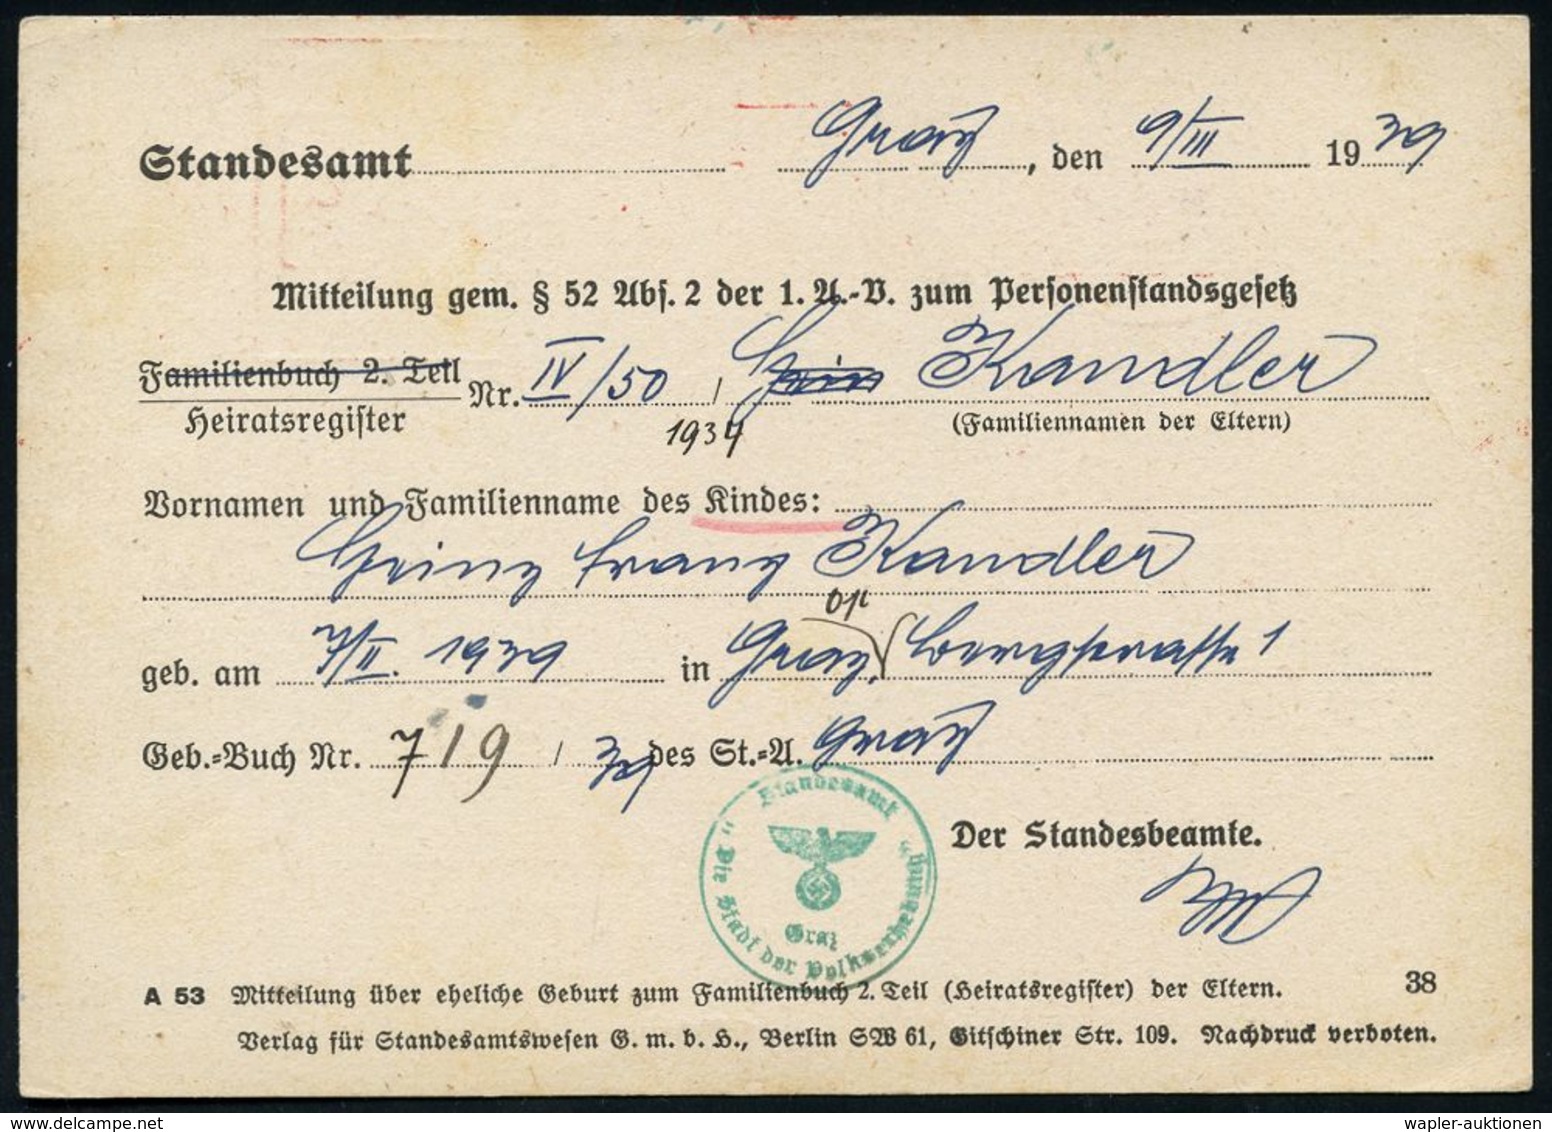 Graz, den 9/III 1939
Standesamt
Mitteilung gem. § 52 Abs. 2 der 1. A.-V. zum Personenstandsgesetz
Familienbuch 2. Teil
Heiratsregister Nr. IV/50 / 1934 Kandler
(Familiennamen der Eltern)
Vornamen und Familienname des Kindes:
Heinz Franz Kandler
geb. am 7/II. 1939 in Graz, Bergstrasse 1
Geb.-Buch Nr. 719 / 39 des St.-A. Graz
Standesamt
Graz
"Die Stadt der Volkserhebung"
Der Standesbeamte.
A 53 Mitteilung über eheliche Geburt zum Familienbuch 2. Teil (Heiratsregister) der Eltern. 38
Verlag für Standesamtswesen G. m. b. H., Berlin SW 61, Gitschiner Str. 109. Nachdruck verboten.
wapler-auktionen